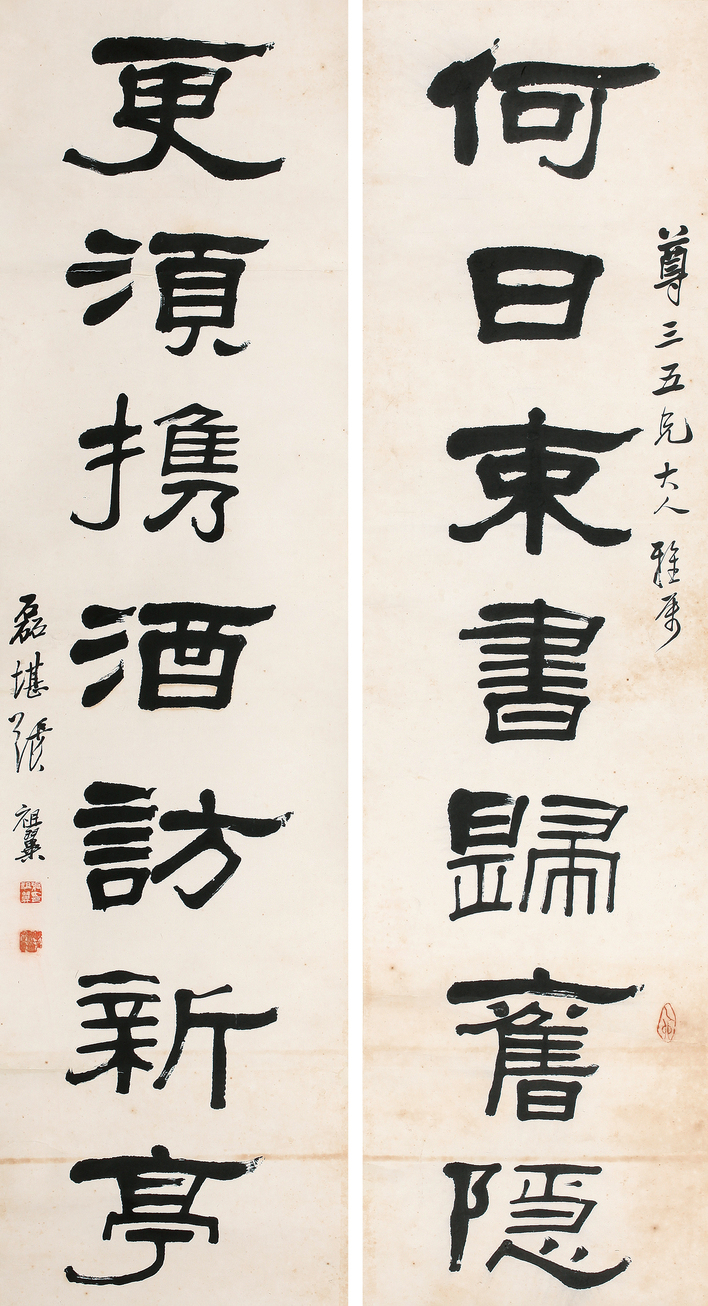 尊三五兄大人雅屬
何日束書歸舊隱
更須攜酒訪新亭
磊堪張祖翼